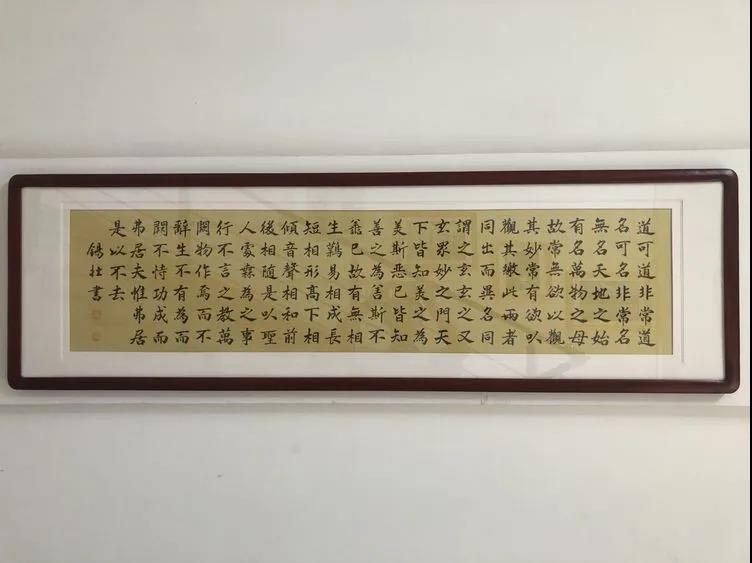 道可道非常道
名可名非常名
無名天地之始
有名萬物之母
故常無欲以觀
其妙常有欲以
觀其徼此兩者
同出而異名同
謂之玄玄之又
玄眾妙之門天
下皆知美之為
美斯惡已皆知
善之為善斯不
善已故有無相
生難易相成長
短相形高下相
傾音聲相和前
後相随是以聖
人處無為之事
行不言之教萬
物作焉而不
辭生不有為而
不恃功成而
弗居夫惟弗居
是以不去
錫書